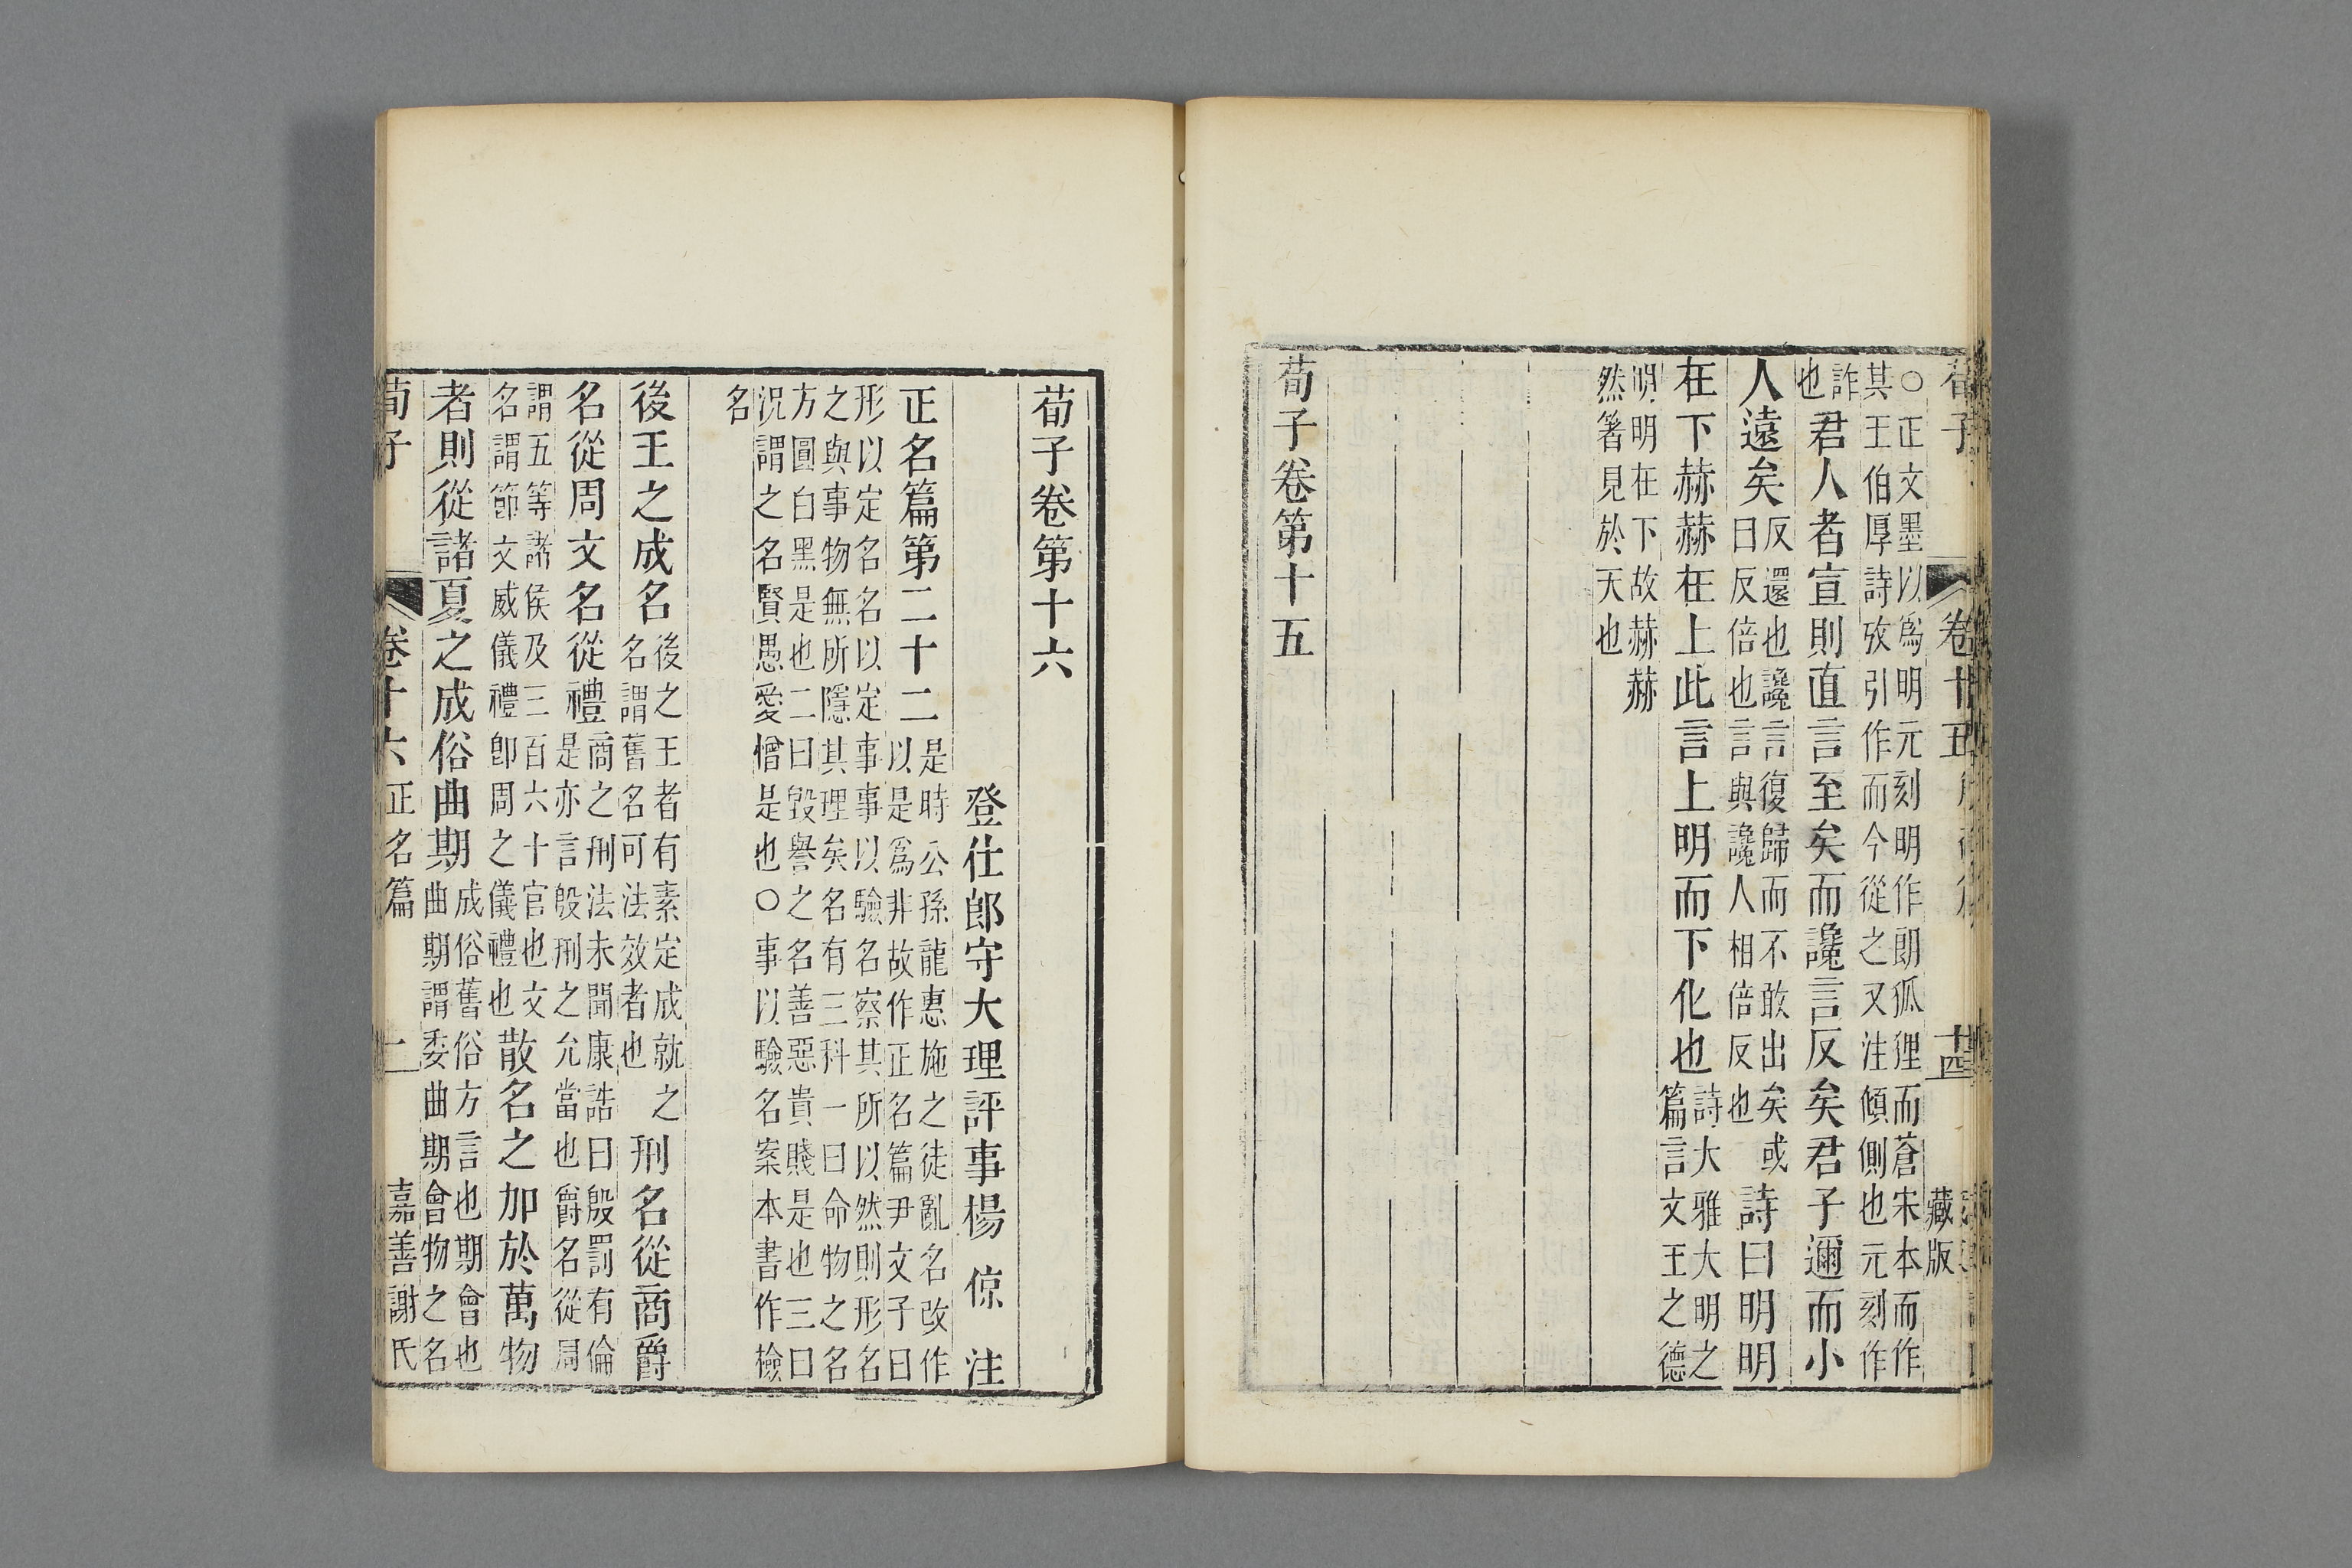 荀子 卷十五 十四 藏版
○正文墨以爲明元刻明作朗狐狸而蒼宋本而作
其王伯厚詩攷引作而今從之又注傾側也元刻作
詐
也
君人者宣則直言至矣而讒言反矣君子邇而小
人遠矣
反還也讒言復歸而不敢出矣或
曰反倍也言與讒人相倍反也
詩曰明明
在下赫赫在上此言上明而下化也
詩大雅大明之
篇言文王之德
明明在下故赫赫
然著見於天也
荀子卷第十五
荀子卷第十六
登仕郎守大理評事楊 倞 注
正名篇第二十二
是時公孫龍惠施之徒亂名改作
以是爲非故作正名篇尹文子曰
形以定名名以定事事以驗名察其所以然則形名
之與事物無所隱其理矣名有三科一曰命物之名
方圓白黑是也二曰毀譽之名善惡貴賤是也三曰
況謂之名賢愚愛憎是也○事以驗名案本書作檢
名
後王之成名
後之王者有素定成就之
名謂舊名可法效者也
刑名從商爵
名從周文名從禮
商之刑法未聞康誥曰殷罰有倫
是亦言殷刑之允當也爵名從周
謂五等諸侯及三百六十官也文
名謂節文威儀禮卽周之儀禮也
散名之加於萬物
者則從諸夏之成俗曲期
成俗舊俗方言也期會也
曲期謂委曲期會物之名
荀子 卷十六 正名篇 一 嘉善謝氏